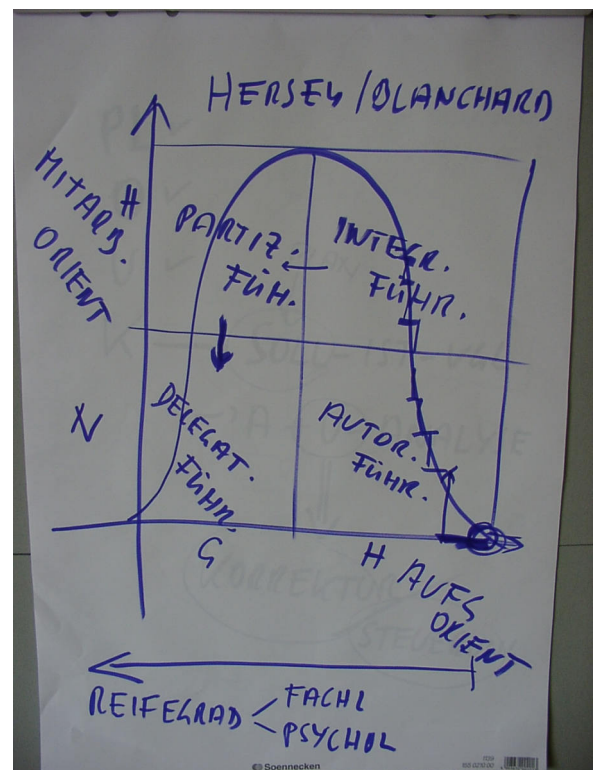 HERSEY/BLANCHARD
MITARB.
ORIENT
H
PARTIZ.
FÜH.
INTEGR.
FÜHR.
N
DELEGAT.
FÜHR.
AUTOR.
FÜHR.
G
H
AUFG
ORIENT
REIFEGRAD
FACHL
PSYCHOL
Soennecken